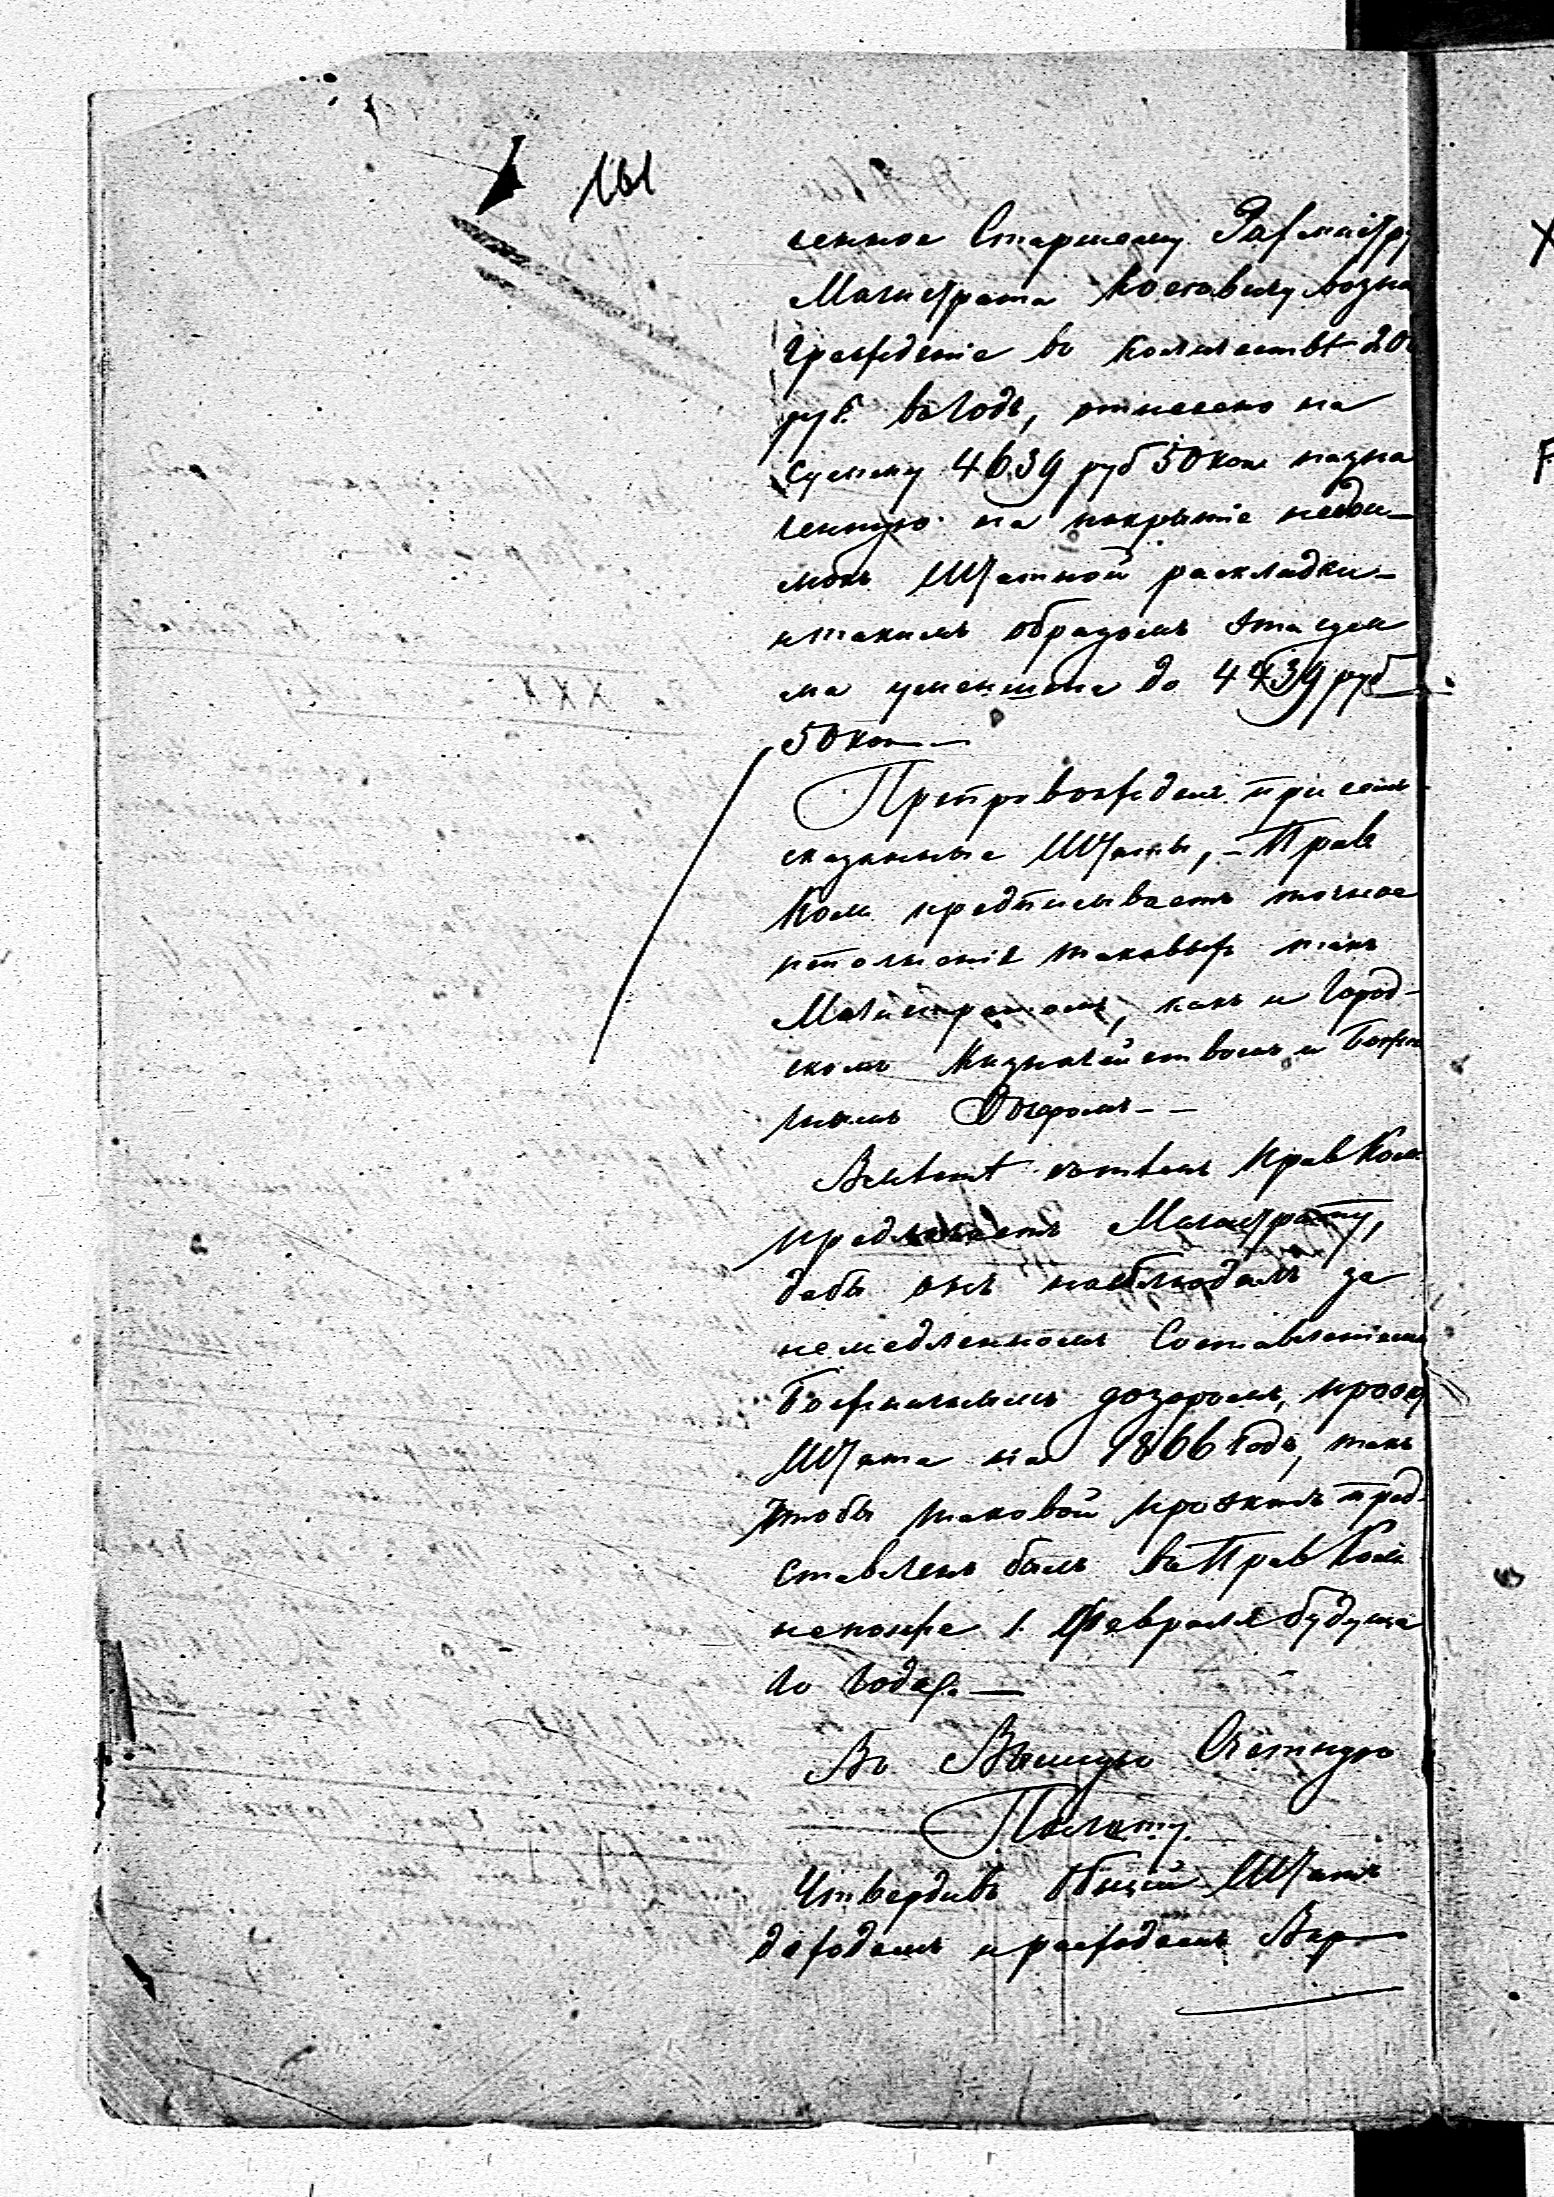 161
ченное Старшему Рафмистру
Магистрата возна
граждение въ количествѣ 200
руб. въ годъ, отнесено на
сумму 4639 руб 50 коп назна
ченную на покрытіе недои-
мокъ Штатной раскладки-
итакимъ образомъ эта сум
ма уменшена до 4439 руб
50 коп
Препровождая при семъ
сказанные Штаты, - Прав
Ком предписываетъ точное
исполненіе таковыхъ такъ
Магистратомъ, какъ и Город-
скомъ Казначействомъ и Божни
чнымъ Дозоромъ - -
Вмѣстѣ сътѣмъ Прав Ком
предлагаетъ Магистрату,
дабы онъ наблюдалъ за
немедленномъ Составленіемъ
Божничнымъ дозоромъ, проэк
Штата на 1866 годъ, такъ
чтобы таковой проэктъ пред-
ставленъ былъ въ Прав Ком
непозже 1 Февраля будуща
го года. —
Въ Высшую Счетную
Палату.
Утвердивъ общій Штатъ
доходамъ и расходамъ Вар